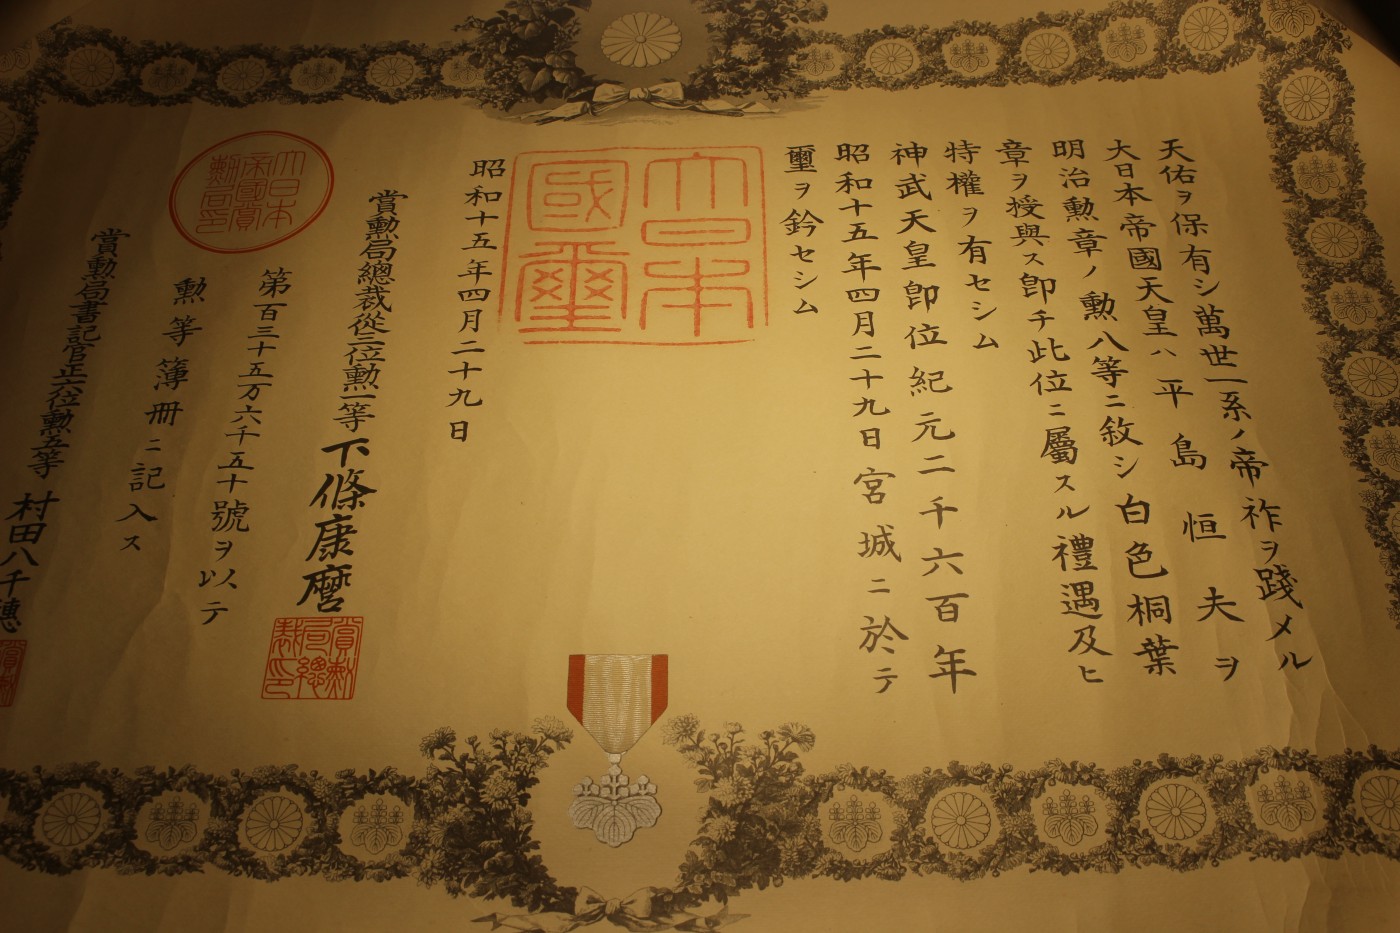 天佑ヲ保有シ萬世一系ノ帝祚ヲ踐メル
大日本帝國天皇ハ平島恒夫ヲ
明治勲章ノ勲八等ニ敘シ白色桐葉
章ヲ授與ス卽チ此位ニ屬スル禮遇及ヒ
特權ヲ有セシム
神武天皇卽位紀元二千六百年
昭和十五年四月二十九日宮城ニ於テ
璽ヲ鈐セシム
大日本
國璽
昭和十五年四月二十九日
賞勲局總裁從三位勲一等下條康麿
賞勲
局總
裁印
第百三十五万六千五十號ヲ以テ
勲等簿冊ニ記入ス
大日本
帝國賞
勲局印
賞勲局書記官正六位勲五等村田八千穗